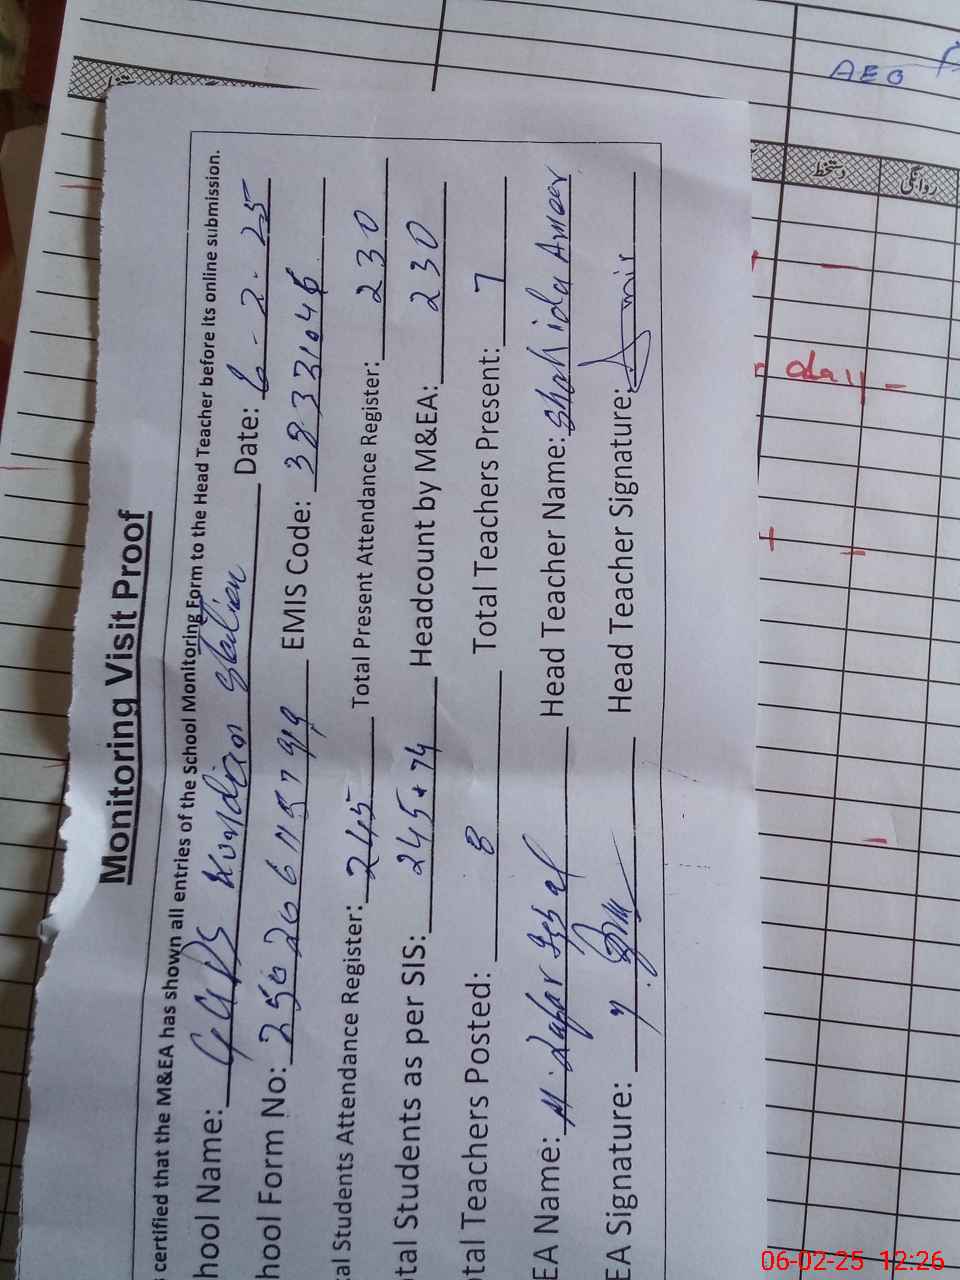 Monitoring Visit Proof
certified that the M&EA has shown all entries of the School Monitoring Form to the Head Teacher before its online submission.
hool Name: GGPS Kundian Station Date: 6-2-25
hool Form No: EMIS Code:
al Students Attendance Register: 245 Total Present Attendance Register: 230
tal Students as per SIS: 245+74 Headcount by M&EA: 230
tal Teachers Posted: 8 Total Teachers Present: 7
EA Name: M. Zafar Iqbal Head Teacher Name: Shahida Ameer
EA Signature: Head Teacher Signature:
AEO
دستخط
روانگی
day -
06-02-25 12:26